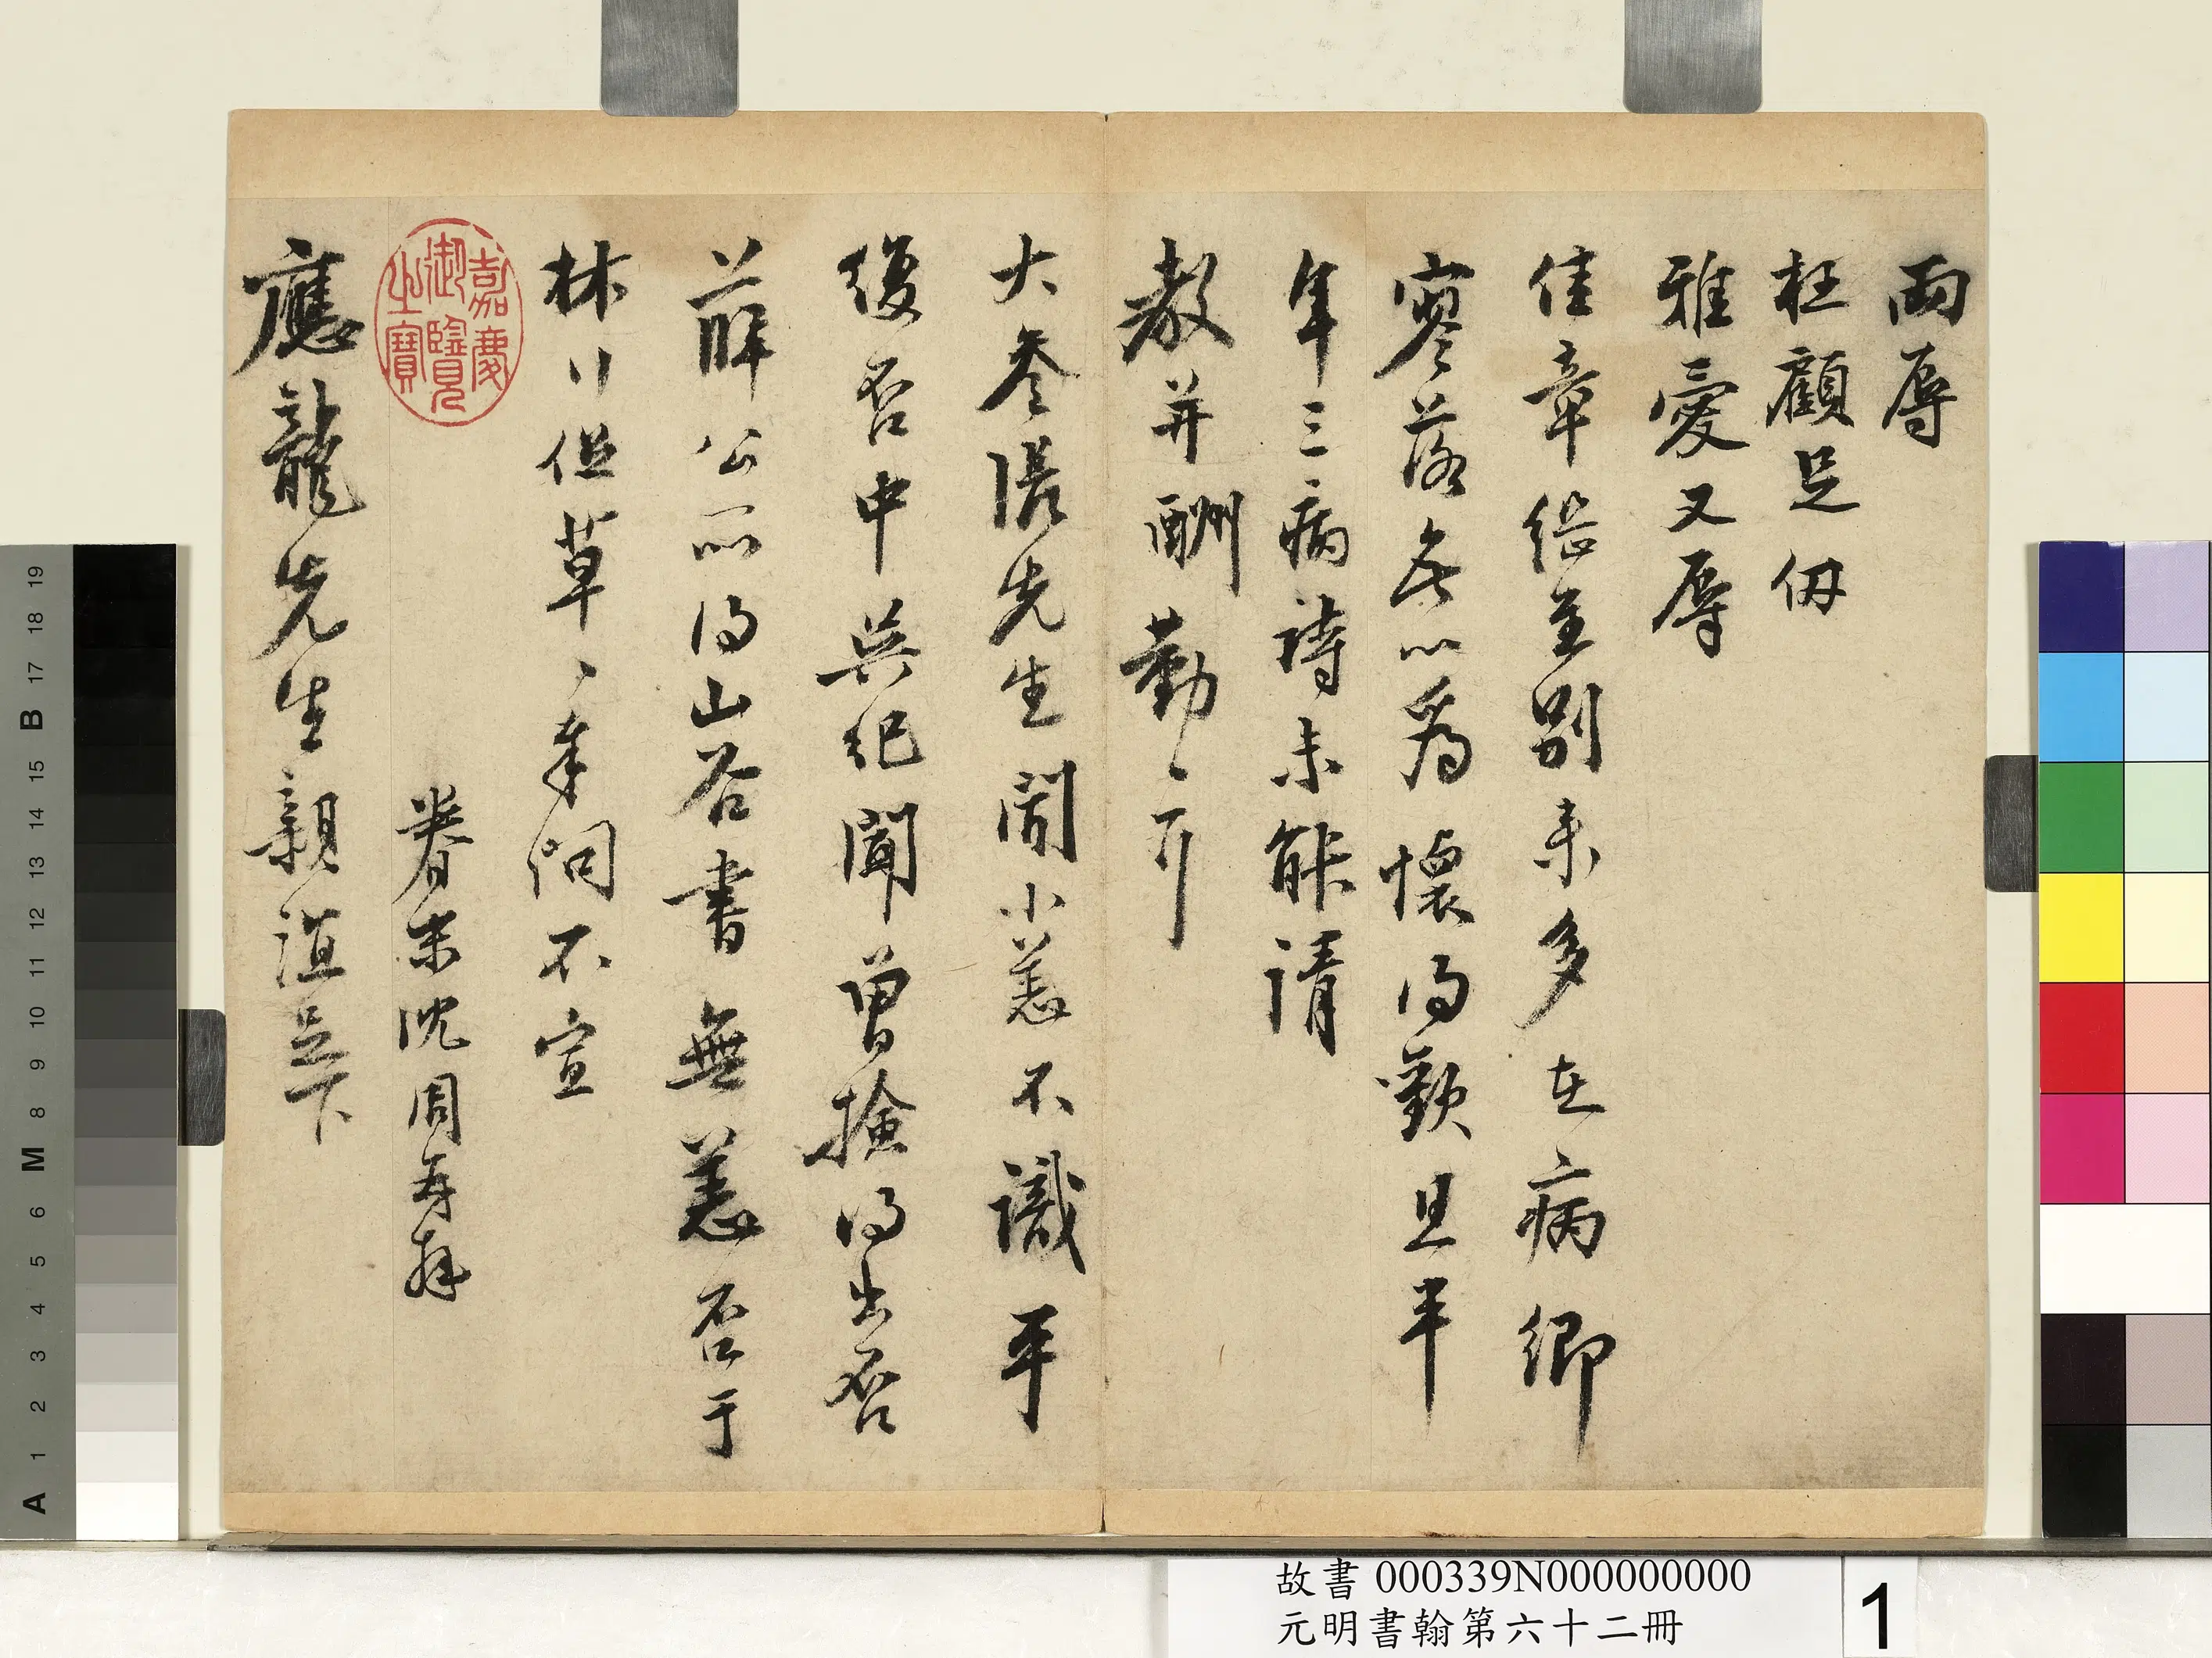 兩辱
枉顧足仞
雅愛又辱
佳章繼至別來多在病鄉
寥落無以為懷得歡且半
年三病詩未能請
教并酬勤〻耳
大參張先生聞小恙不識平
復否中吳紀聞曾撿得出否
薛公所得山谷書無恙否于
林〻但草〻奉問不宣
眷末沈周再拜
應龍先生親誼足下
嘉慶
御覽
之寶
故書 000339N000000000
元明書翰第六十二冊
1
A 1 2 3 4 5 6 M 8 9 10 11 12 13 14 15 B 17 18 19